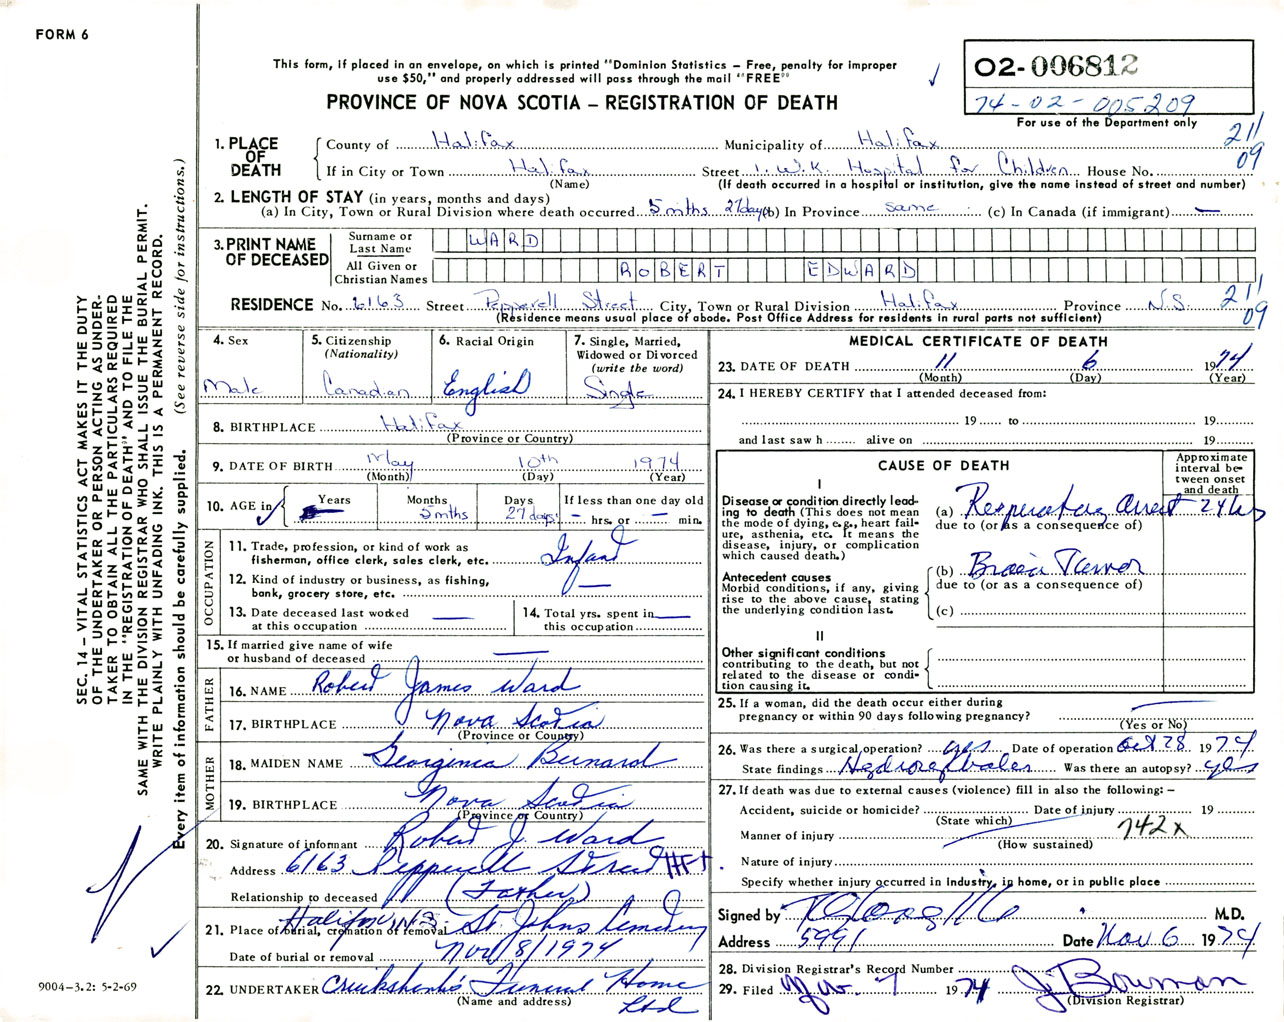 FORM 6
This form, if placed in an envelope, on which is printed "Dominion Statistics – Free, penalty for improper
use $50," and properly addressed will pass through the mail "FREE"
PROVINCE OF NOVA SCOTIA – REGISTRATION OF DEATH
O2-006812
74-02-005209
For use of the Department only
1. PLACE OF DEATH
County of Halifax Municipality of Halifax 211
If in City or Town Halifax Street I. W. K. Hospital for Children House No. 09
(Name) (If death occurred in a hospital or institution, give the name instead of street and number)
2. LENGTH OF STAY (in years, months and days)
(a) In City, Town or Rural Division where death occurred 5 mths 27 days (b) In Province same (c) In Canada (if immigrant) —
3. PRINT NAME OF DECEASED
Surname or Last Name WARD
All Given or Christian Names ROBERT EDWARD
RESIDENCE No. 6163 Street Pepperell Street City, Town or Rural Division Halifax Province N.S. 211
(Residence means usual place of abode. Post Office Address for residents in rural parts not sufficient) 09
4. Sex Male
5. Citizenship (Nationality) Canadian
6. Racial Origin English
7. Single, Married, Widowed or Divorced (write the word) Single
8. BIRTHPLACE Halifax
(Province or Country)
9. DATE OF BIRTH May 10th 1974
(Month) (Day) (Year)
10. AGE in Years Months 5 mths Days 27 days If less than one day old – hrs. or – min.
OCCUPATION
11. Trade, profession, or kind of work as
fisherman, office clerk, sales clerk, etc. Infant
12. Kind of industry or business, as fishing,
bank, grocery store, etc. —
13. Date deceased last worked
at this occupation —
14. Total yrs. spent in
this occupation —
15. If married give name of wife
or husband of deceased —
FATHER
16. NAME Robert James Ward
17. BIRTHPLACE Nova Scotia
(Province or Country)
MOTHER
18. MAIDEN NAME Georginia Bernard
19. BIRTHPLACE Nova Scotia
(Province or Country)
20. Signature of informant Robert J. Ward
Address 6163 Pepperell Street Hfx.
Relationship to deceased (Father)
21. Place of burial, cremation or removal Halifax N.S. St. Johns Cemetery
Date of burial or removal Nov/8/1974
22. UNDERTAKER Cruikshank's Funeral Home
(Name and address) Ltd
MEDICAL CERTIFICATE OF DEATH
23. DATE OF DEATH 11 6 1974
(Month) (Day) (Year)
24. I HEREBY CERTIFY that I attended deceased from:
19 to 19
and last saw h alive on 19
CAUSE OF DEATH
Approximate interval between onset and death
I
Disease or condition directly leading to death (This does not mean the mode of dying, e.g., heart failure, asthenia, etc. It means the disease, injury, or complication which caused death.)
(a) Respiratory Arrest 24 hrs
due to (or as a consequence of)
Antecedent causes
Morbid conditions, if any, giving rise to the above cause, stating the underlying condition last.
(b) Brain Tumor
due to (or as a consequence of)
(c)
II
Other significant conditions
contributing to the death, but not related to the disease or condition causing it.
25. If a woman, did the death occur either during
pregnancy or within 90 days following pregnancy? —
(Yes or No)
26. Was there a surgical operation? yes Date of operation Oct 28 1974
State findings Hydrocephalus Was there an autopsy? yes
27. If death was due to external causes (violence) fill in also the following: –
Accident, suicide or homicide? Date of injury 19
(State which)
Manner of injury 742x
(How sustained)
Nature of injury
Specify whether injury occurred in industry, in home, or in public place
Signed by M.D.
Address 5991 Date Nov 6 1974
28. Division Registrar's Record Number
29. Filed Nov. 7 1974 J Bowman
(Division Registrar)
SEC. 14 – VITAL STATISTICS ACT MAKES IT THE DUTY
OF THE UNDERTAKER OR PERSON ACTING AS UNDER-
TAKER TO OBTAIN ALL THE PARTICULARS REQUIRED
IN THE "REGISTRATION OF DEATH" AND TO FILE THE
SAME WITH THE DIVISION REGISTRAR WHO SHALL ISSUE THE BURIAL PERMIT.
WRITE PLAINLY WITH UNFADING INK. THIS IS A PERMANENT RECORD.
Every item of information should be carefully supplied. (See reverse side for instructions.)
9004-3.2: 5-2-69